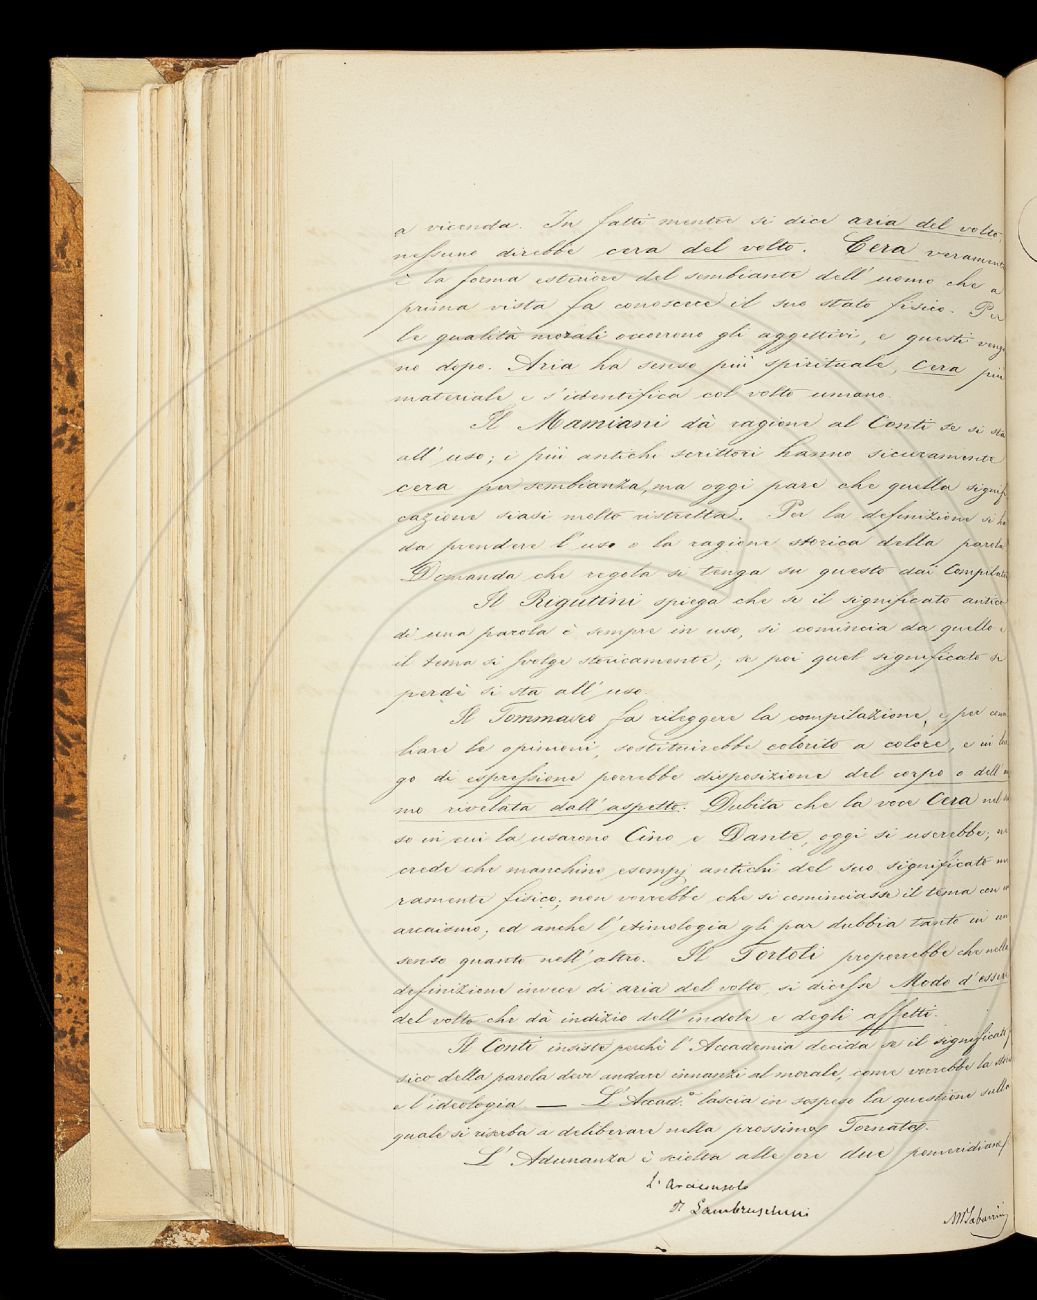 a vicenda. In fatti mentre si dice aria del volto,
nessuno direbbe cera del volto. Cera veramente
è la forma esteriore del sembiante dell'uomo che a
prima vista fa conoscere il suo stato fisico. Per
le qualità morali occorrono gli aggettivi, e questi vengo
no dopo. Aria ha senso più spirituale, cera più
materiale e s'identifica col volto umano.
Il Mamiani dà ragione al Conti se si sta
all'uso; i più antichi scrittori hanno sicuramente
cera per sembianza, ma oggi pare che quella signifi
cazione siasi molto ristretta. Per la definizione si ha
da prendere l'uso o la ragione storica della parola?
Domanda che regola si tenga su questo dai Compilato
Il Rigutini spiega che se il significato antico
di una parola è sempre in uso, si comincia da quello e
il tema si svolge storicamente; se poi quel significato si
perdè si sta all'uso.
Il Tommaseo fa rileggere la compilazione, e per conci
liare le opinioni, sostituirebbe colorito a colore, e in luo
go di espressione porrebbe disposizione del corpo o dell'ani
mo rivelata dall'aspetto. Dubita che la voce Cera nel sen
so in cui la usarono Cino e Dante, oggi si userebbe; ne
crede che manchino esempj antichi del suo significato me
ramente fisico; non vorrebbe che si cominciasse il tema con un
arcaismo; ed anche l'etimologia gli par dubbia tanto in un
senso quanto nell'altro. Il Tortoli proporrebbe che nella
definizione invece di aria del volto, si dicesse Modo d'essere
del volto che dà indizio dell'indole e degli affetti.
Il Conti insiste perchè l'Accademia decida se il significato f
sico della parola deve andare innanzi al morale, come vorrebbe la storia
e l'ideologia. — L'Accad.ª lascia in sospeso la questione sulla
quale si riserba a deliberare nella prossima Tornata.
L'Adunanza è sciolta alle ore due pomeridiane.
L'Arciconsolo
R Lambruschini
M Tabarrini